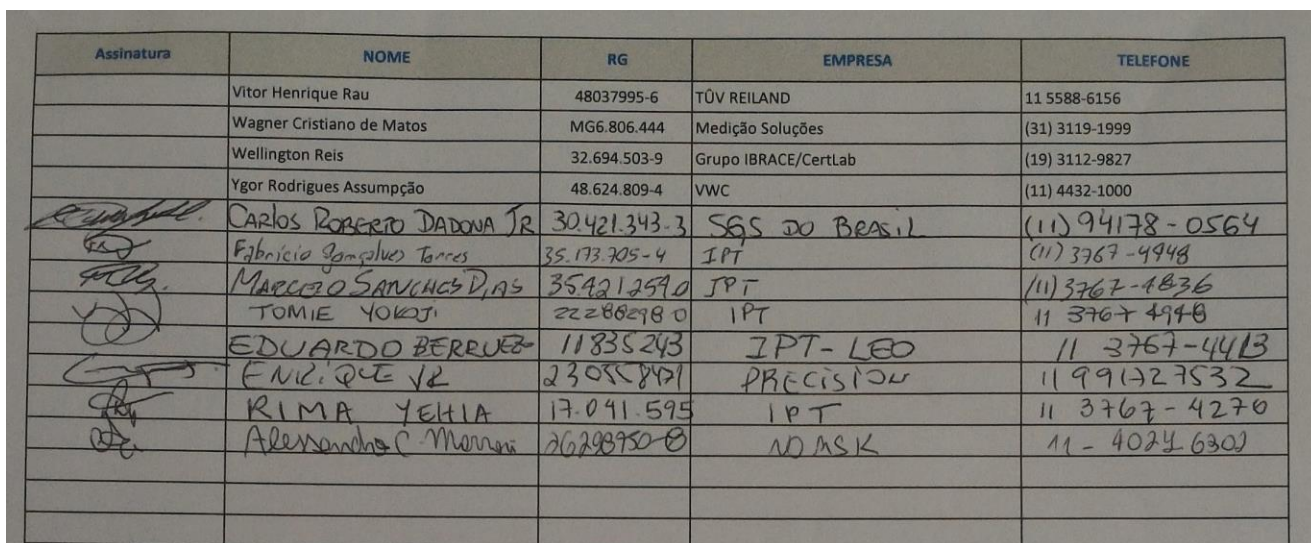 Assinatura NOME RG EMPRESA TELEFONE
Vitor Henrique Rau 48037995-6 TÛV REILAND 11 5588-6156
Wagner Cristiano de Matos MG6.806.444 Medição Soluções (31) 3119-1999
Wellington Reis 32.694.503-9 Grupo IBRACE/CertLab (19) 3112-9827
Ygor Rodrigues Assumpção 48.624.809-4 VWC (11) 4432-1000
CARlOS ROBERTO DADONA JR 30.421.343-3 SGS DO BRASIL (11) 94178-0564
Fabrício Gonçalves Torres 35.173.705-4 IPT (11) 3767-4948
MARCELO SANCHES DIAS 354212590 IPT (11) 3767-4836
TOMIE YOKOJI 22288298 0 IPT 11 3767 4948
EDUARDO 11835243 IPT-LEO 11 3767-4413
PRECISION 11 991727532
RIMA YEHIA 17.041.595 IPT 11 3767-4276
C. 26298950-8 11 - 4024 6302